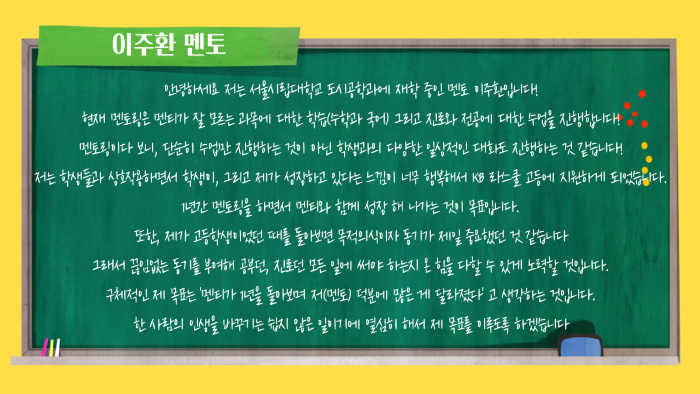 이주환 멘토
안녕하세요 저는 서울시립대학교 도시공학과에 재학 중인 멘토 이주환입니다!
현재 멘토링은 멘티가 잘 모르는 과목에 대한 학습(수학과 국어) 그리고 진로와 전공에 대한 수업을 진행합니다!
멘토링이다 보니, 단순히 수업만 진행하는 것이 아닌 학생과의 다양한 일상적인 대화도 진행하는 것 같습니다!
저는 학생들과 상호작용하면서 학생이, 그리고 제가 성장하고 있다는 느낌이 너무 행복해서 KB 라스쿨 고등에 지원하게 되었습니다.
1년간 멘토링을 하면서 멘티와 함께 성장 해 나가는 것이 목표입니다.
또한, 제가 고등학생이었던 때를 돌아보면 목적의식이자 동기가 제일 중요했던 것 같습니다
그래서 끊임없는 동기를 부여해 공부던, 진로던 모든 일에 써야 하는지 온 힘을 다할 수 있게 노력할 것입니다.
구체적인 제 목표는 '멘티가 1년을 돌아보며 저(멘토) 덕분에 많은 게 달라졌다' 고 생각하는 것입니다.
한 사람의 인생을 바꾸기는 쉽지 않은 일이기에 열심히 해서 제 목표를 이루도록 하겠습니다